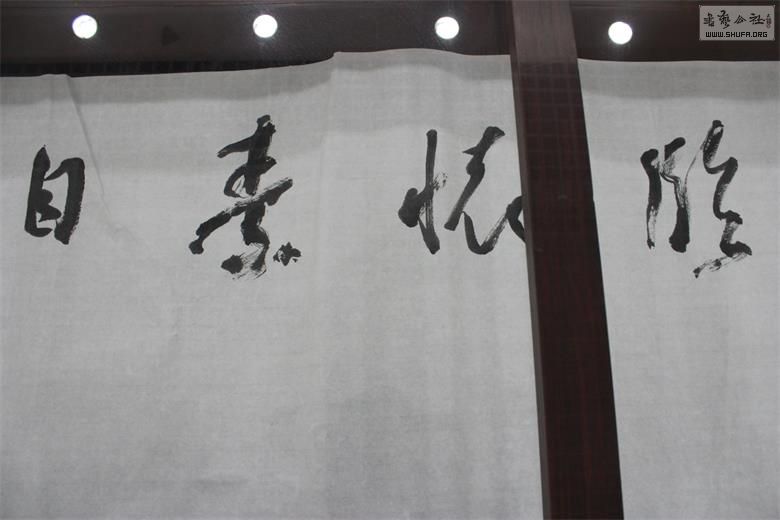 临怀素自
書艺公社
WWW.SHUFA.ORG